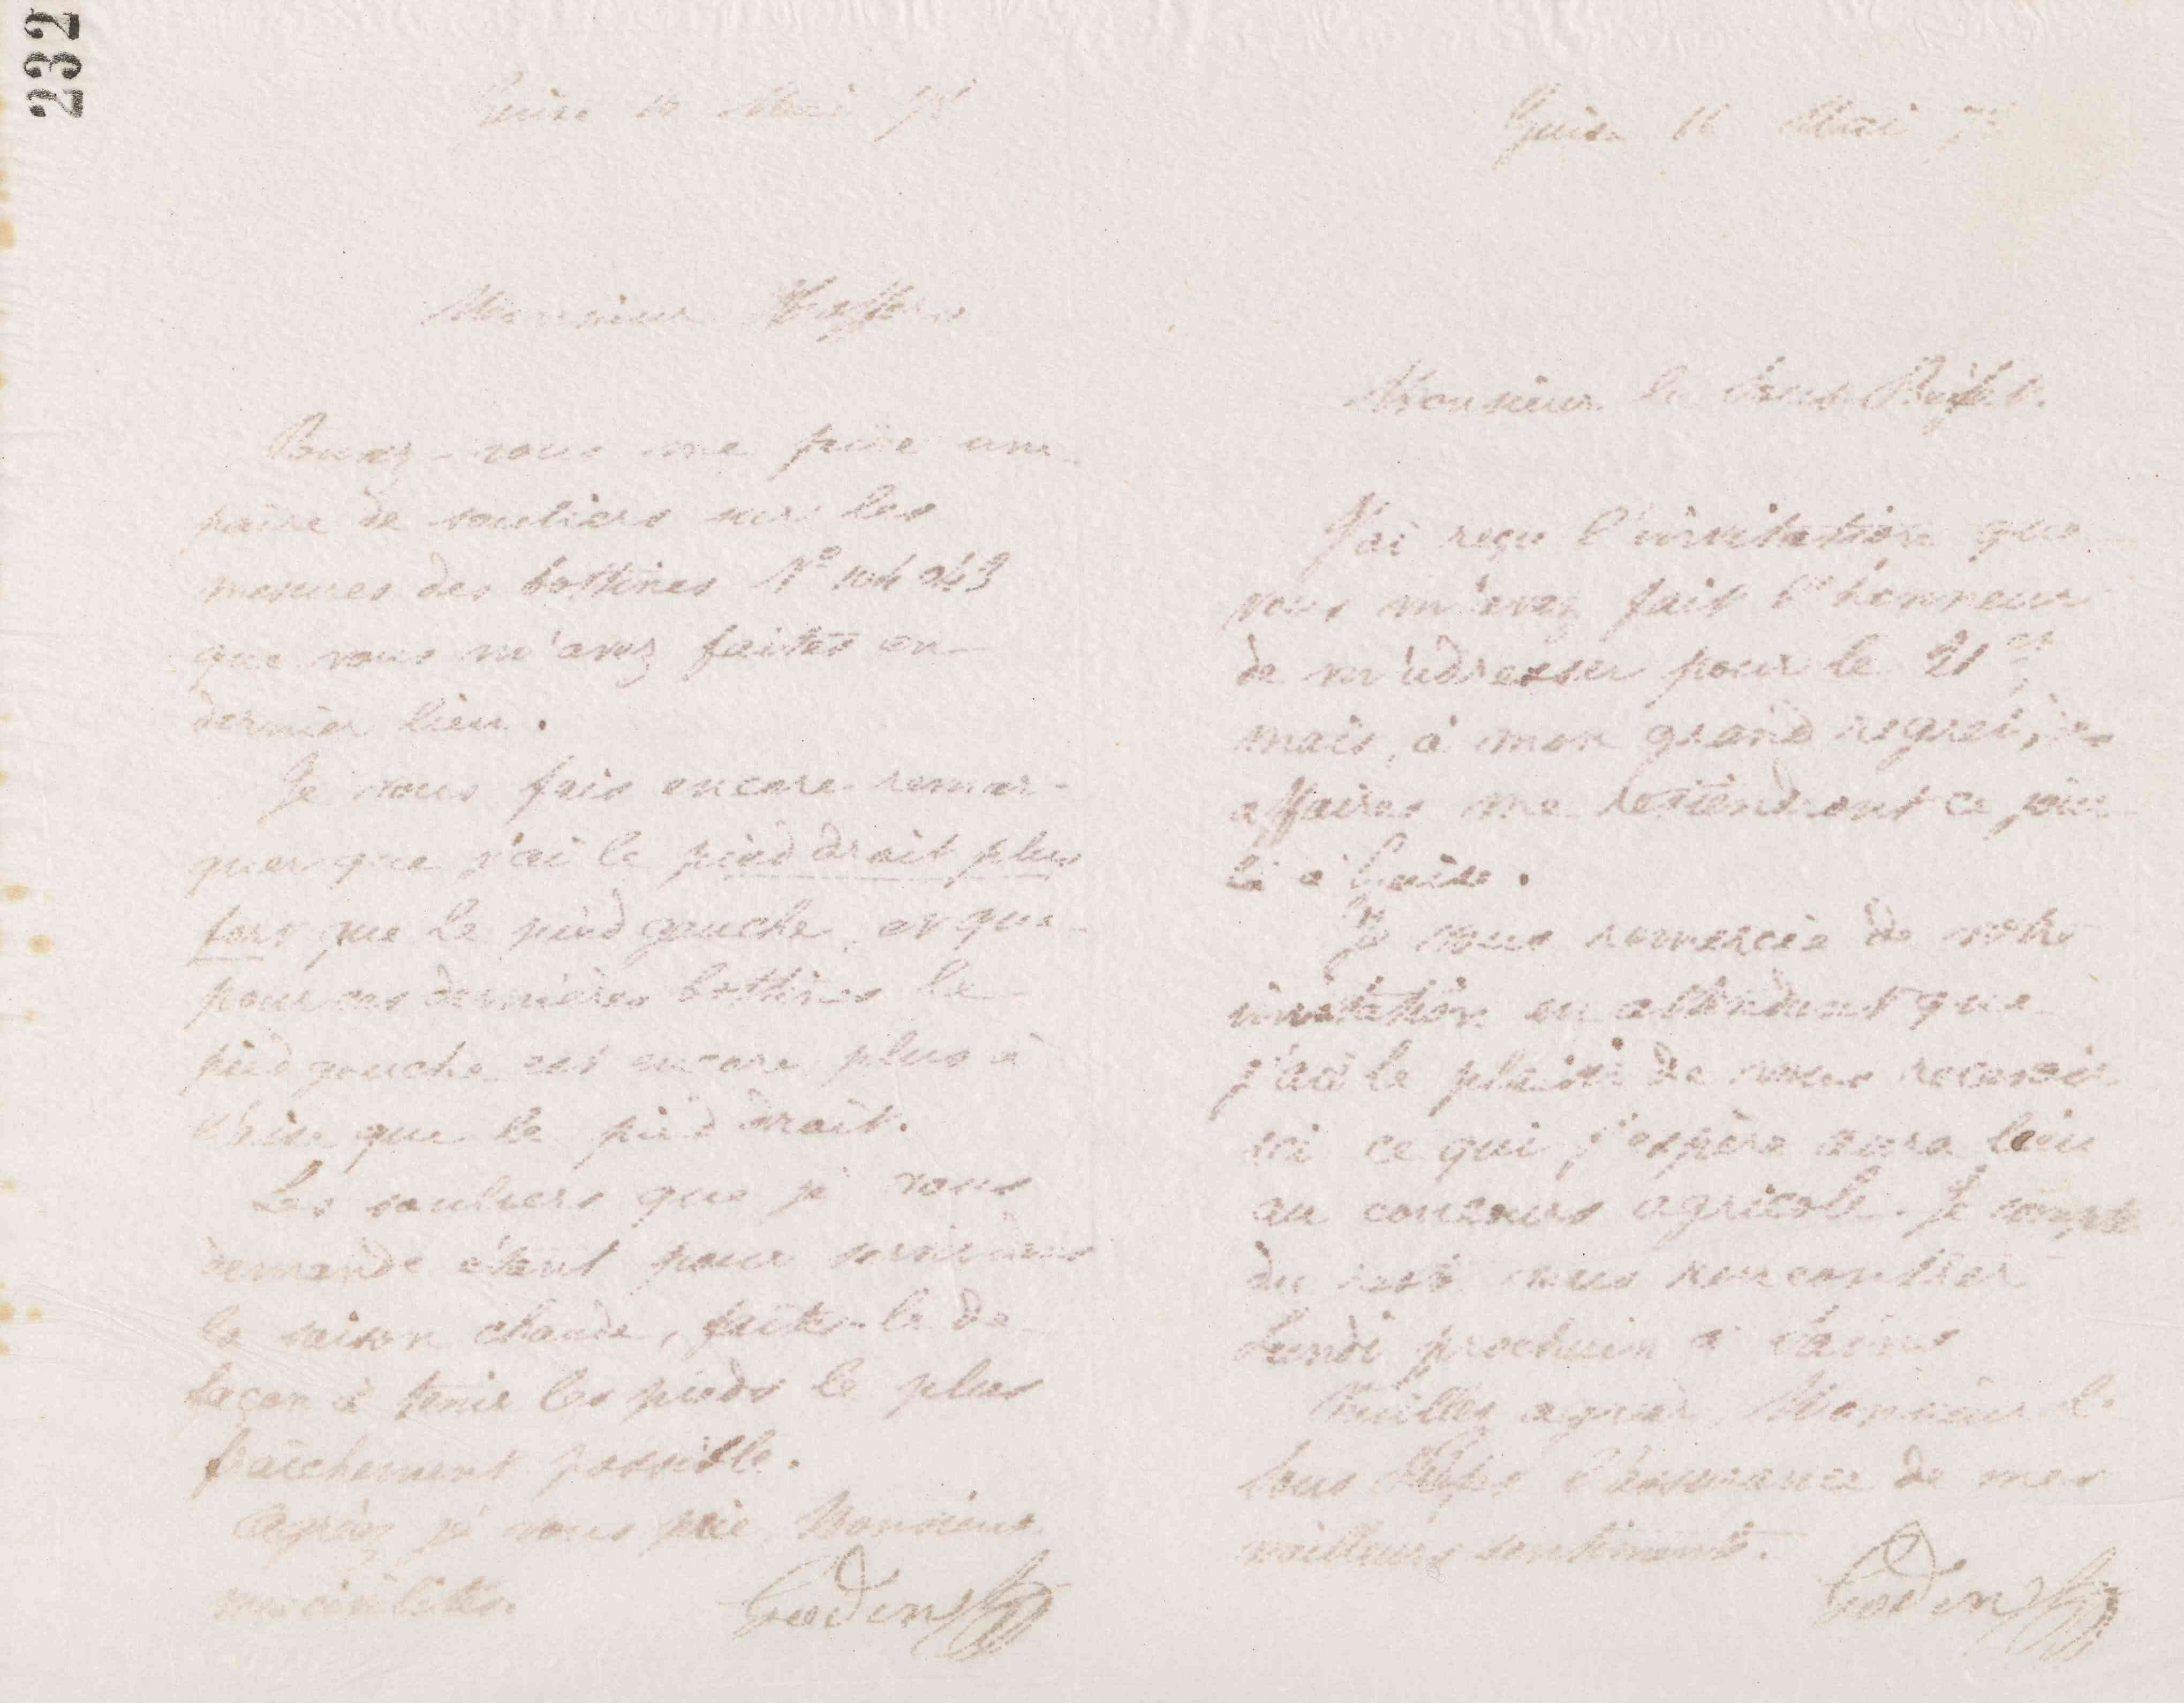 232
Guise 10 Mai
Monsieur
Pouvez-vous me faire une
paire de souliers sur les
mesures des bottines N°
que vous m'avez faites en
dernier lieu.
Je vous fais encore remar-
quer que j'ai le pied droit plus
fort que le pied gauche, et que
pour ces dernières bottines le
pied gauche est encore plus à
que le pied droit.
Les souliers que je vous
demande étant pour
la saison chaude, faites-le de
façon à tenir les pieds le plus
fraîchement possible.
Agréez je vous prie, Monsieur
mes civilités.
Godin
Guise 16 Mai
Monsieur le Sous Préfet.
J'ai reçu l'invitation que
vous m'avez fait l'honneur
de m'adresser pour le 21
mais, à mon grand regret,
affaires me retiendront ce jour
là à Guise.
Je vous remercie de votre
invitation en attendant que
j'aie le plaisir de vous recevoir
ici ce qui j'espère aura lieu
au concours agricole. Je compte
du reste vous rencontrer
Lundi prochain à Sains
Veuillez agréer, Monsieur le
Sous Préfet l'assurance de mes
meilleurs sentiments.
Godin